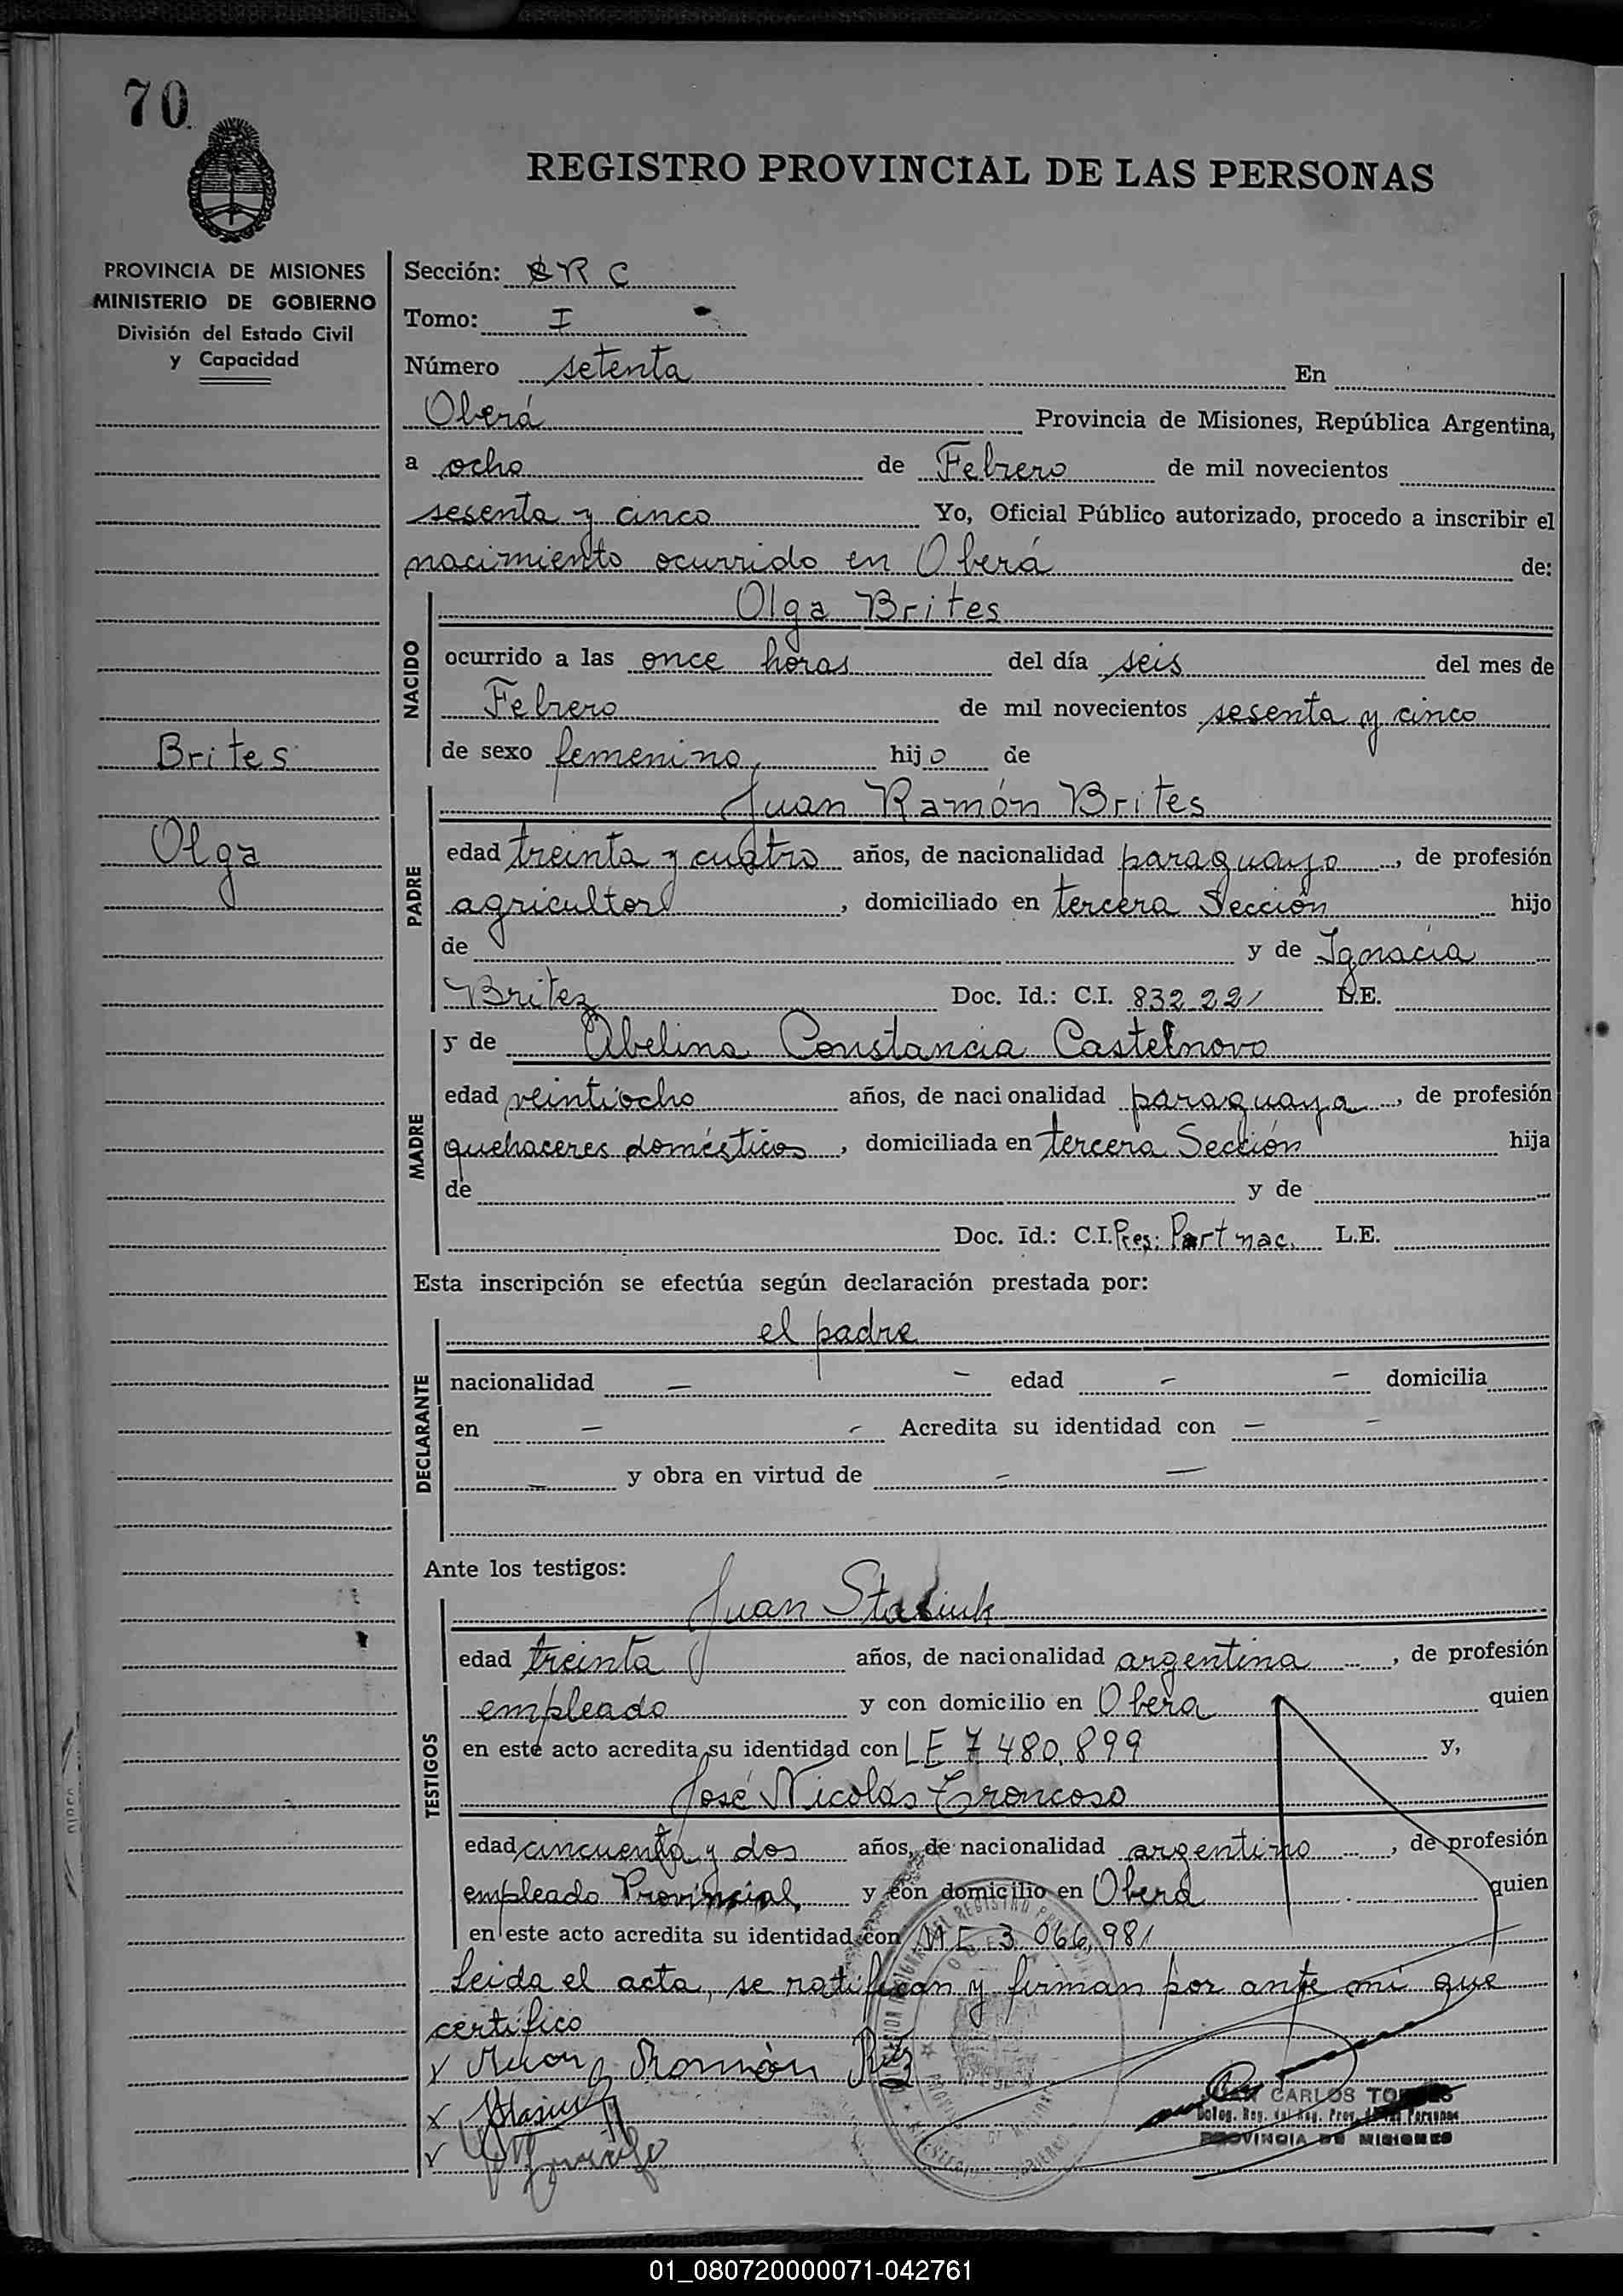 70
REGISTRO PROVINCIAL DE LAS PERSONAS
PROVINCIA DE MISIONES
MINISTERIO DE GOBIERNO
División del Estado Civil
y Capacidad
Brites
Olga
Sección: RC
Tomo: I
Número setenta En
Oberá Provincia de Misiones, República Argentina,
a ocho de Febrero de mil novecientos
sesenta y cinco Yo, Oficial Público autorizado, procedo a inscribir el
nacimiento ocurrido en Oberá de:
NACIDO
Olga Brites
ocurrido a las once horas del día seis del mes de
Febrero de mil novecientos sesenta y cinco
de sexo femenino, hijo de
PADRE
Juan Ramón Brites
edad treinta y cuatro años, de nacionalidad paraguayo, de profesión
agricultor, domiciliado en tercera Sección hijo
de y de Ignacia
Britez Doc. Id.: C.I. 832 221 L.E.
MADRE
y de Abelina Constancia Castelnovo
edad veintiocho años, de nacionalidad paraguaya, de profesión
quehaceres domésticos, domiciliada en tercera Sección hija
de y de
Doc. Id.: C.I. Pres: Part nac. L.E.
Esta inscripción se efectúa según declaración prestada por:
DECLARANTE
el padre
nacionalidad — — edad — — domicilia
en — — Acredita su identidad con — —
— y obra en virtud de — —
Ante los testigos:
TESTIGOS
Juan Stasiuk
edad treinta años, de nacionalidad argentina, de profesión
empleado y con domicilio en Obera quien
en este acto acredita su identidad con LE 7 480,899 y,
José Nicolás Troncoso
edad cincuenta y dos años, de nacionalidad argentino, de profesión
empleado Provincial y con domicilio en Oberá quien
en este acto acredita su identidad con MI 3 066,981
Leida el acta, se ratifican y firman por ante mi que
certifico
Ramón
CARLOS
PROVINCIA DE MISIONES
01_080720000071-042761